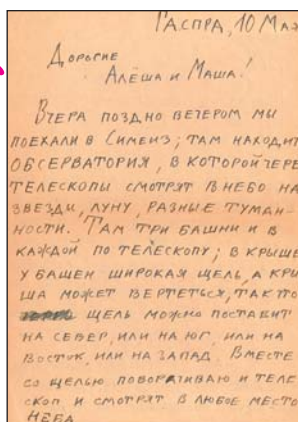 Гаспра, 10 Мая
Дорогие
Алёша и Маша!
Вчера поздно вечером мы
поехали в Симеиз; там находит
обсерватория, в которой чере
телескопы смотрят в небо на
звезды, луну, разные туман-
ности. Там три башни и в
каждой по телескопу; в крыше
у башен широкая щель, а кры
ша может вертеться, так что
щель можно поставит
на север, или на юг, или на
восток, или на запад. Вместе
со щелью поворачиваю и теле
скоп и смотрят в любое место
неба